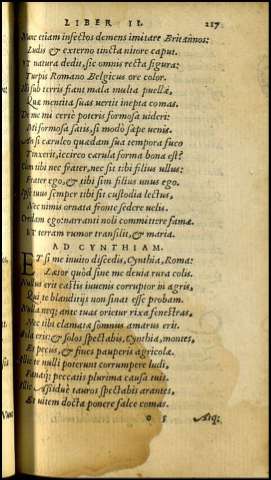 LIBER II. 217
Nunc etiam infectos demens imitare Britãnos:
Ludis & externo tincta nitore caput.
Vt natura dedit, sic omnis recta figura:
Turpis Romano Belgicus ore color.
Illi sub terris fiant mala multa puellæ,
Quæ mentita suas uertit inepta comas.
De me mi certè poteris formosa uideri:
Mi formosa satis, si modò sæpe uenis.
An si cæruleo quædam sua tempora fuco
Tinxerit, iccirco cærula forma bona est?
Cum tibi nec frater, nec sit tibi filius ullus:
Frater ego, & tibi sim filius unus ego.
Ipse tuus semper tibi sit custodia lectus,
Nec nimis ornata fronte sedere uelis.
Credam ego narranti noli committere famæ.
Et terram rumor transilit, & maria.
AD CYNTHIAM.
ETsi me inuito discedis, Cynthia, Roma:
Lætor quòd sine me deuia rura colis.
Nullus erit castis iuuenis corruptor in agris,
Qui te blanditijs non sinat esse probam.
Nulla neq; ante tuas orietur rixa fenestras,
Nec tibi clamatæ somnus amarus erit.
Sola eris: & solos spectabis, Cynthia, montes,
Et pecus, & fines pauperis agricolæ.
Illic te nulli poterunt corrumpere ludi,
Fanaq; peccatis plurima causa tuis.
Illic Assiduè tauros spectabis arantes,
Et uitem docta ponere falce comas.
o 5 Atq;